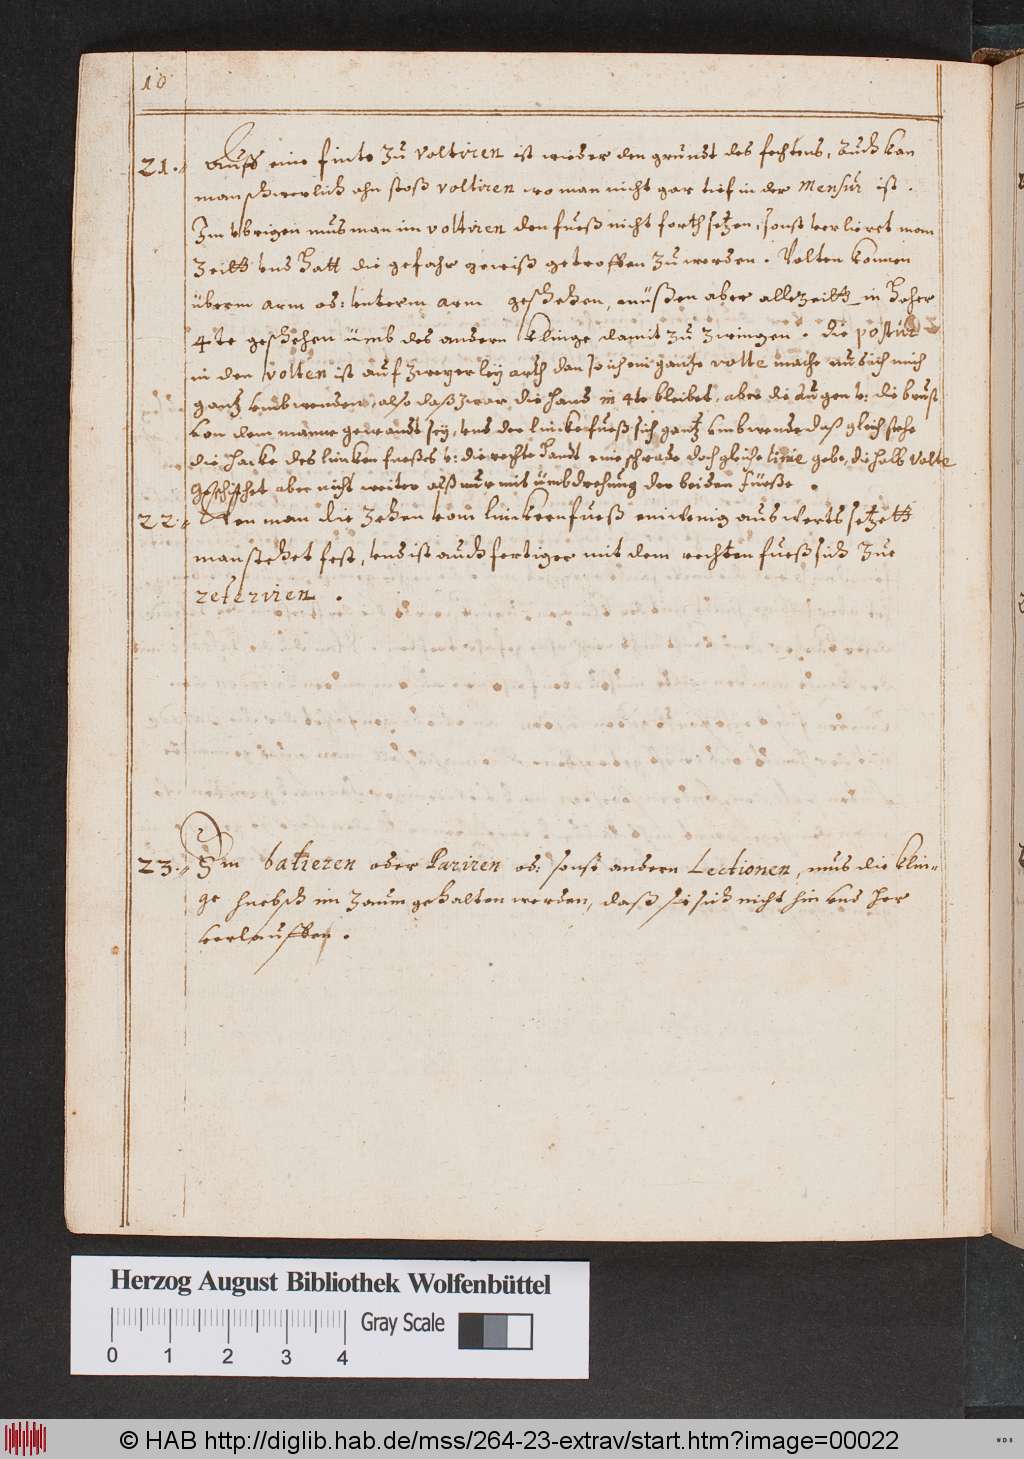 10
21. Auff eine finte zu voltiren ist wieder den grundt des fechtens, Auch kan
man schwerlich ohn stoß voltiren wo man nicht gar tief in der Mensur ist.
Im vbrigen mus man im voltiren den fueß nicht forth setzen, sonst verlieret man
Zeitt vnd hatt die gefahr gewiß getroffen zu werden. Volten können
überm arm od: vnterm arm geschehen, müßen aber allezeitt in hoher
4te geschehen umb des andern klinge damit zu zwingen. die postur
in den volten ist auf zweyerley arth dan so ich ein gantze volte mache mus ich mich
gantz vmbwenden, also daß zwar die hand in 4te bleibet, aber die augen v: die brust
von dem manne gewandt sey, vnd der lincke fueß sich gantz vmbwende daß gleich stehe
die hacke des lincken fueßes v: die rechte handt eine schrade doch gleiche linie gebe, die halb volte
geschichet aber nicht weiter alß nur mit umbdrehung der beiden füeße.
22. Wen man die Zehen vom linckern fueß ein wenig auswerts setzett
man stehet fest, vnd ist auch fertiger mit dem rechten fueß sich zue
reteriren.
23. Im batieren oder Pariren od: sonst andern Lectionen, mus die klin=
ge huebsch im Zaum gehalten werden, daß sie sich nicht hin vnd her
verlauffen.
Herzog August Bibliothek Wolfenbüttel
Gray Scale
0 1 2 3 4
© HAB http://diglib.hab.de/mss/264-23-extrav/start.htm?image=00022